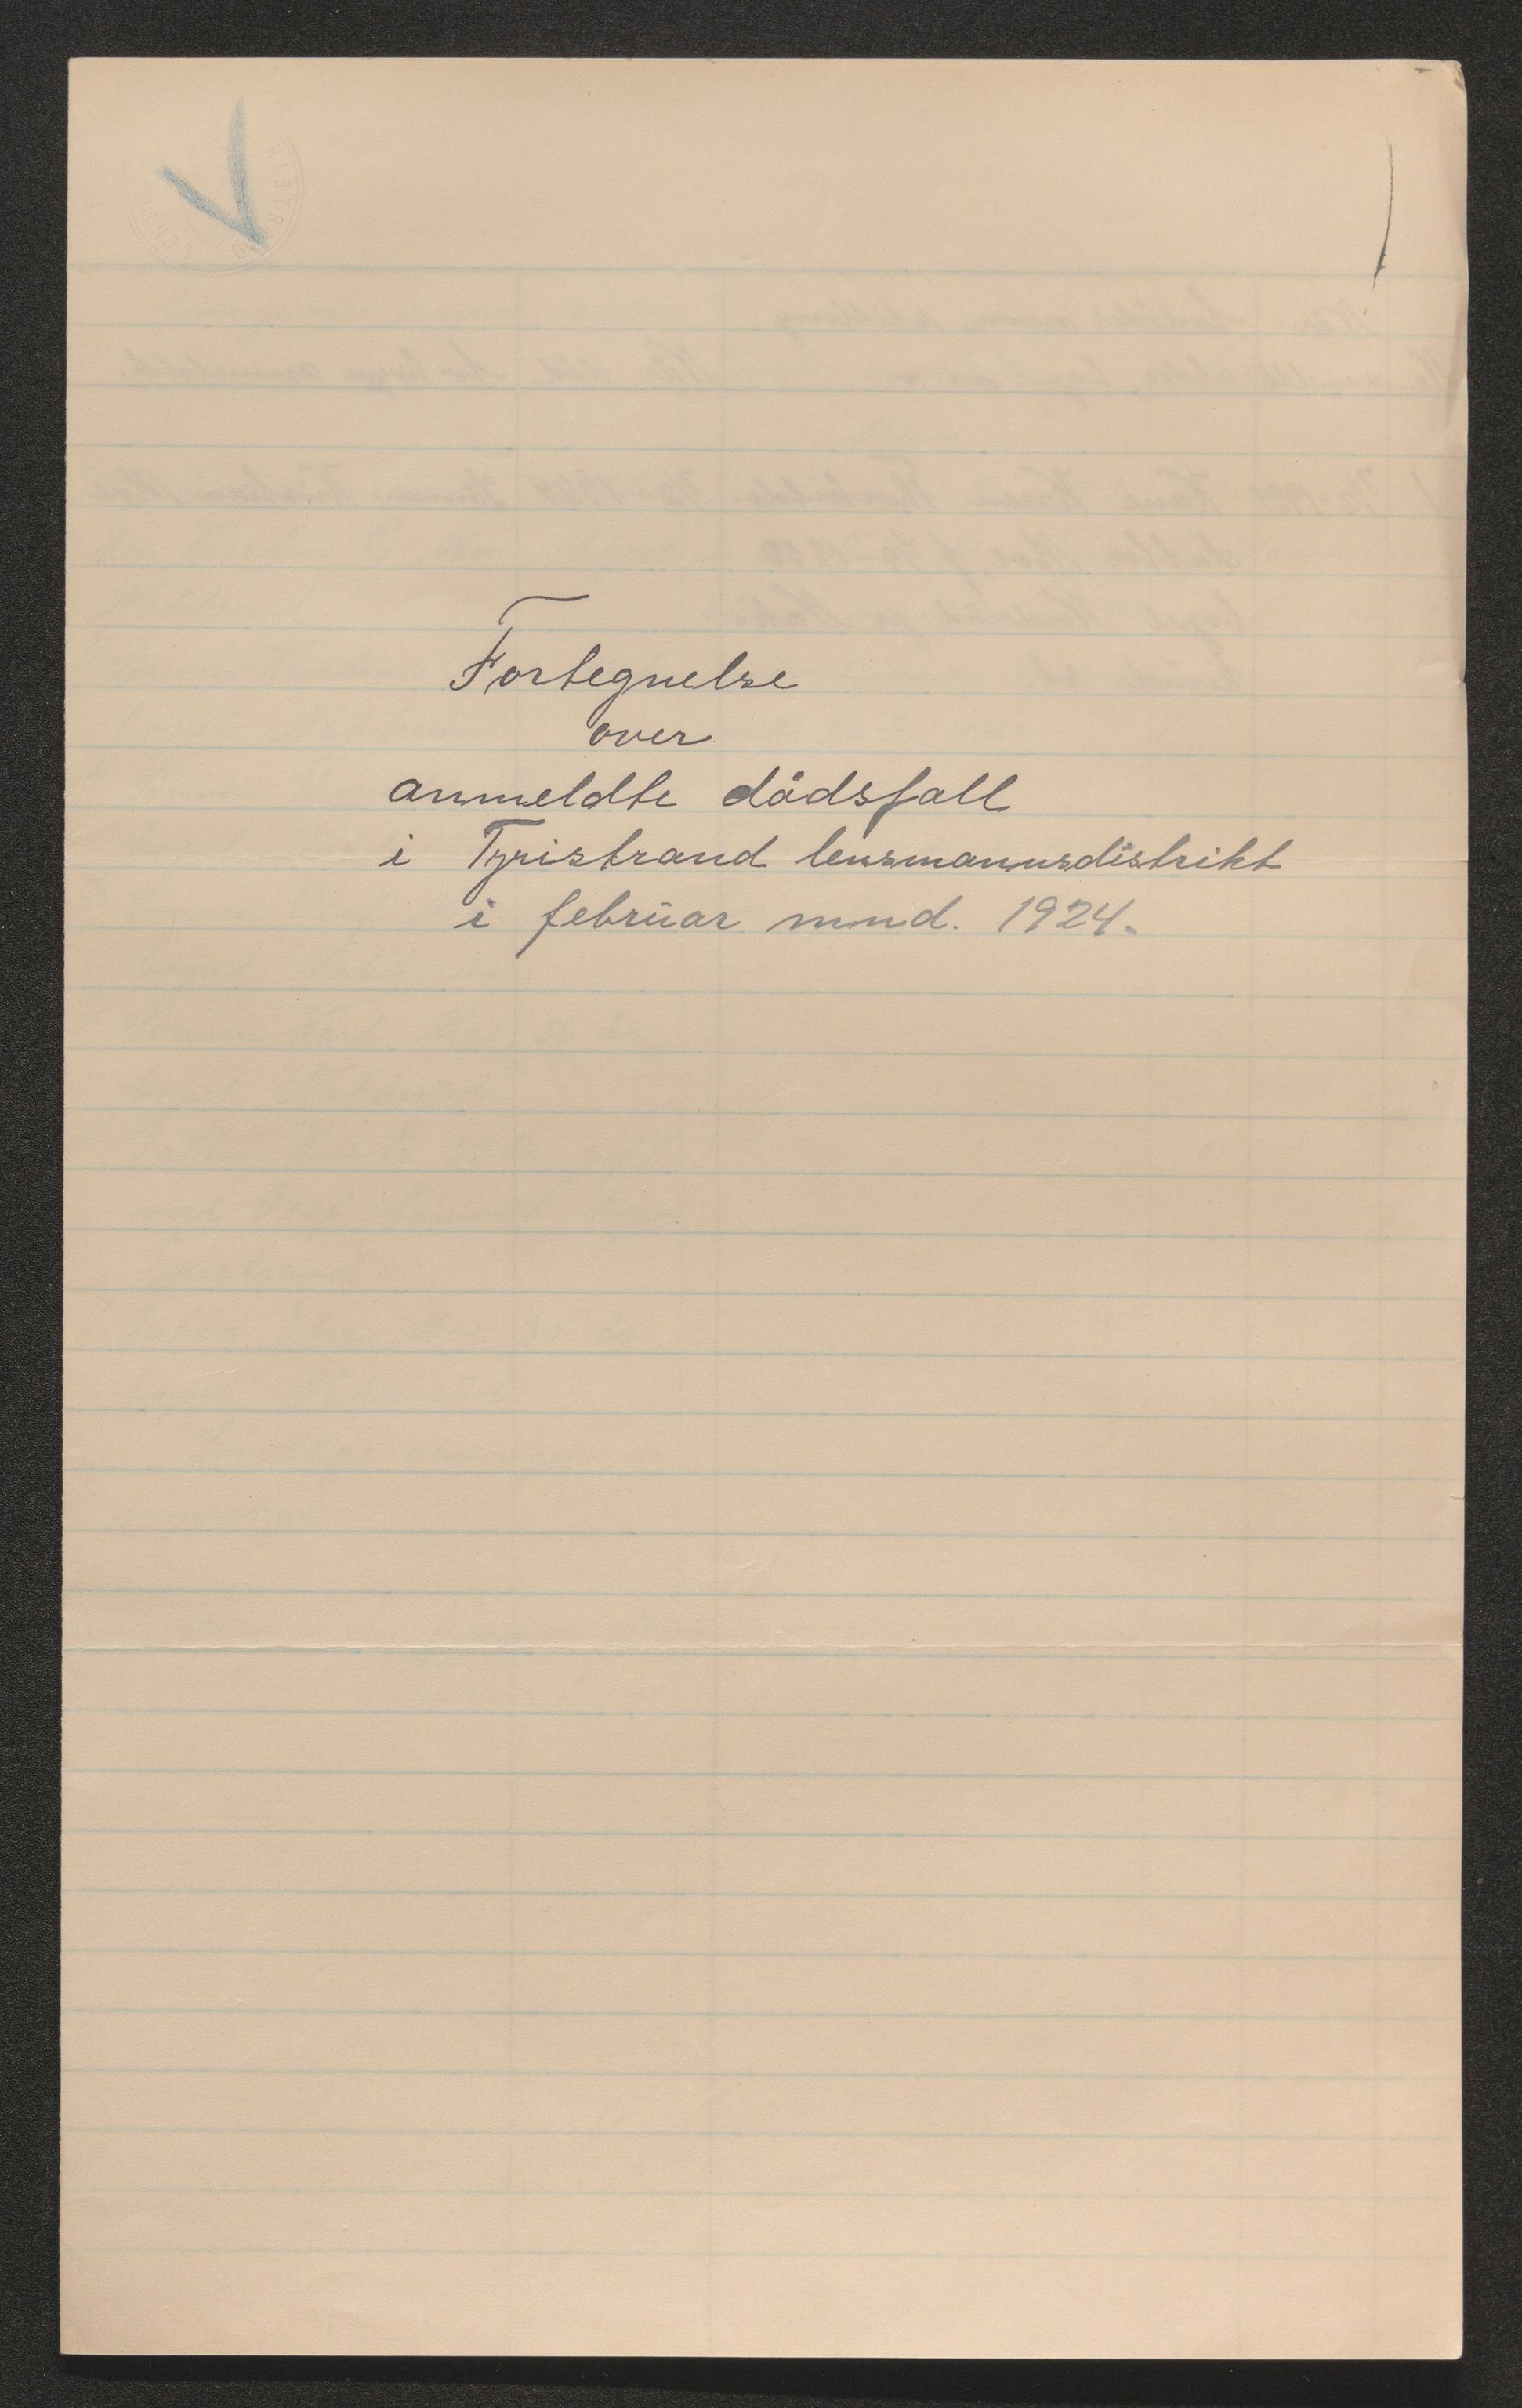 Fortegnelse
over
anmeldte dödsfall
i Tyristrand lensmannsdistrikt
i februar mnd. 1924.